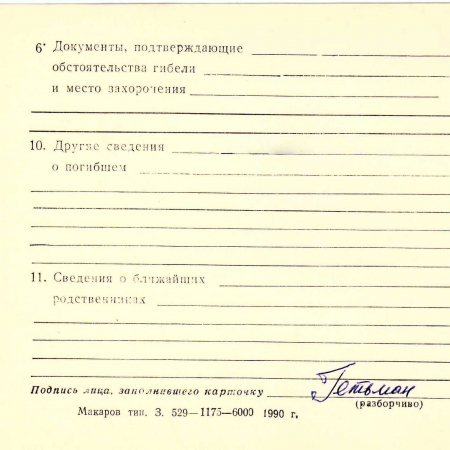 6· Документы, подтверждающие
обстоятельства гибели
и место захорочения
10. Другие сведения
о погибшем
11. Сведения о ближайших
родственниках
Подпись лица, заполнившего карточку Гетьман
(разборчиво)
Макаров тип. З. 529—1175—6000 1990 г.